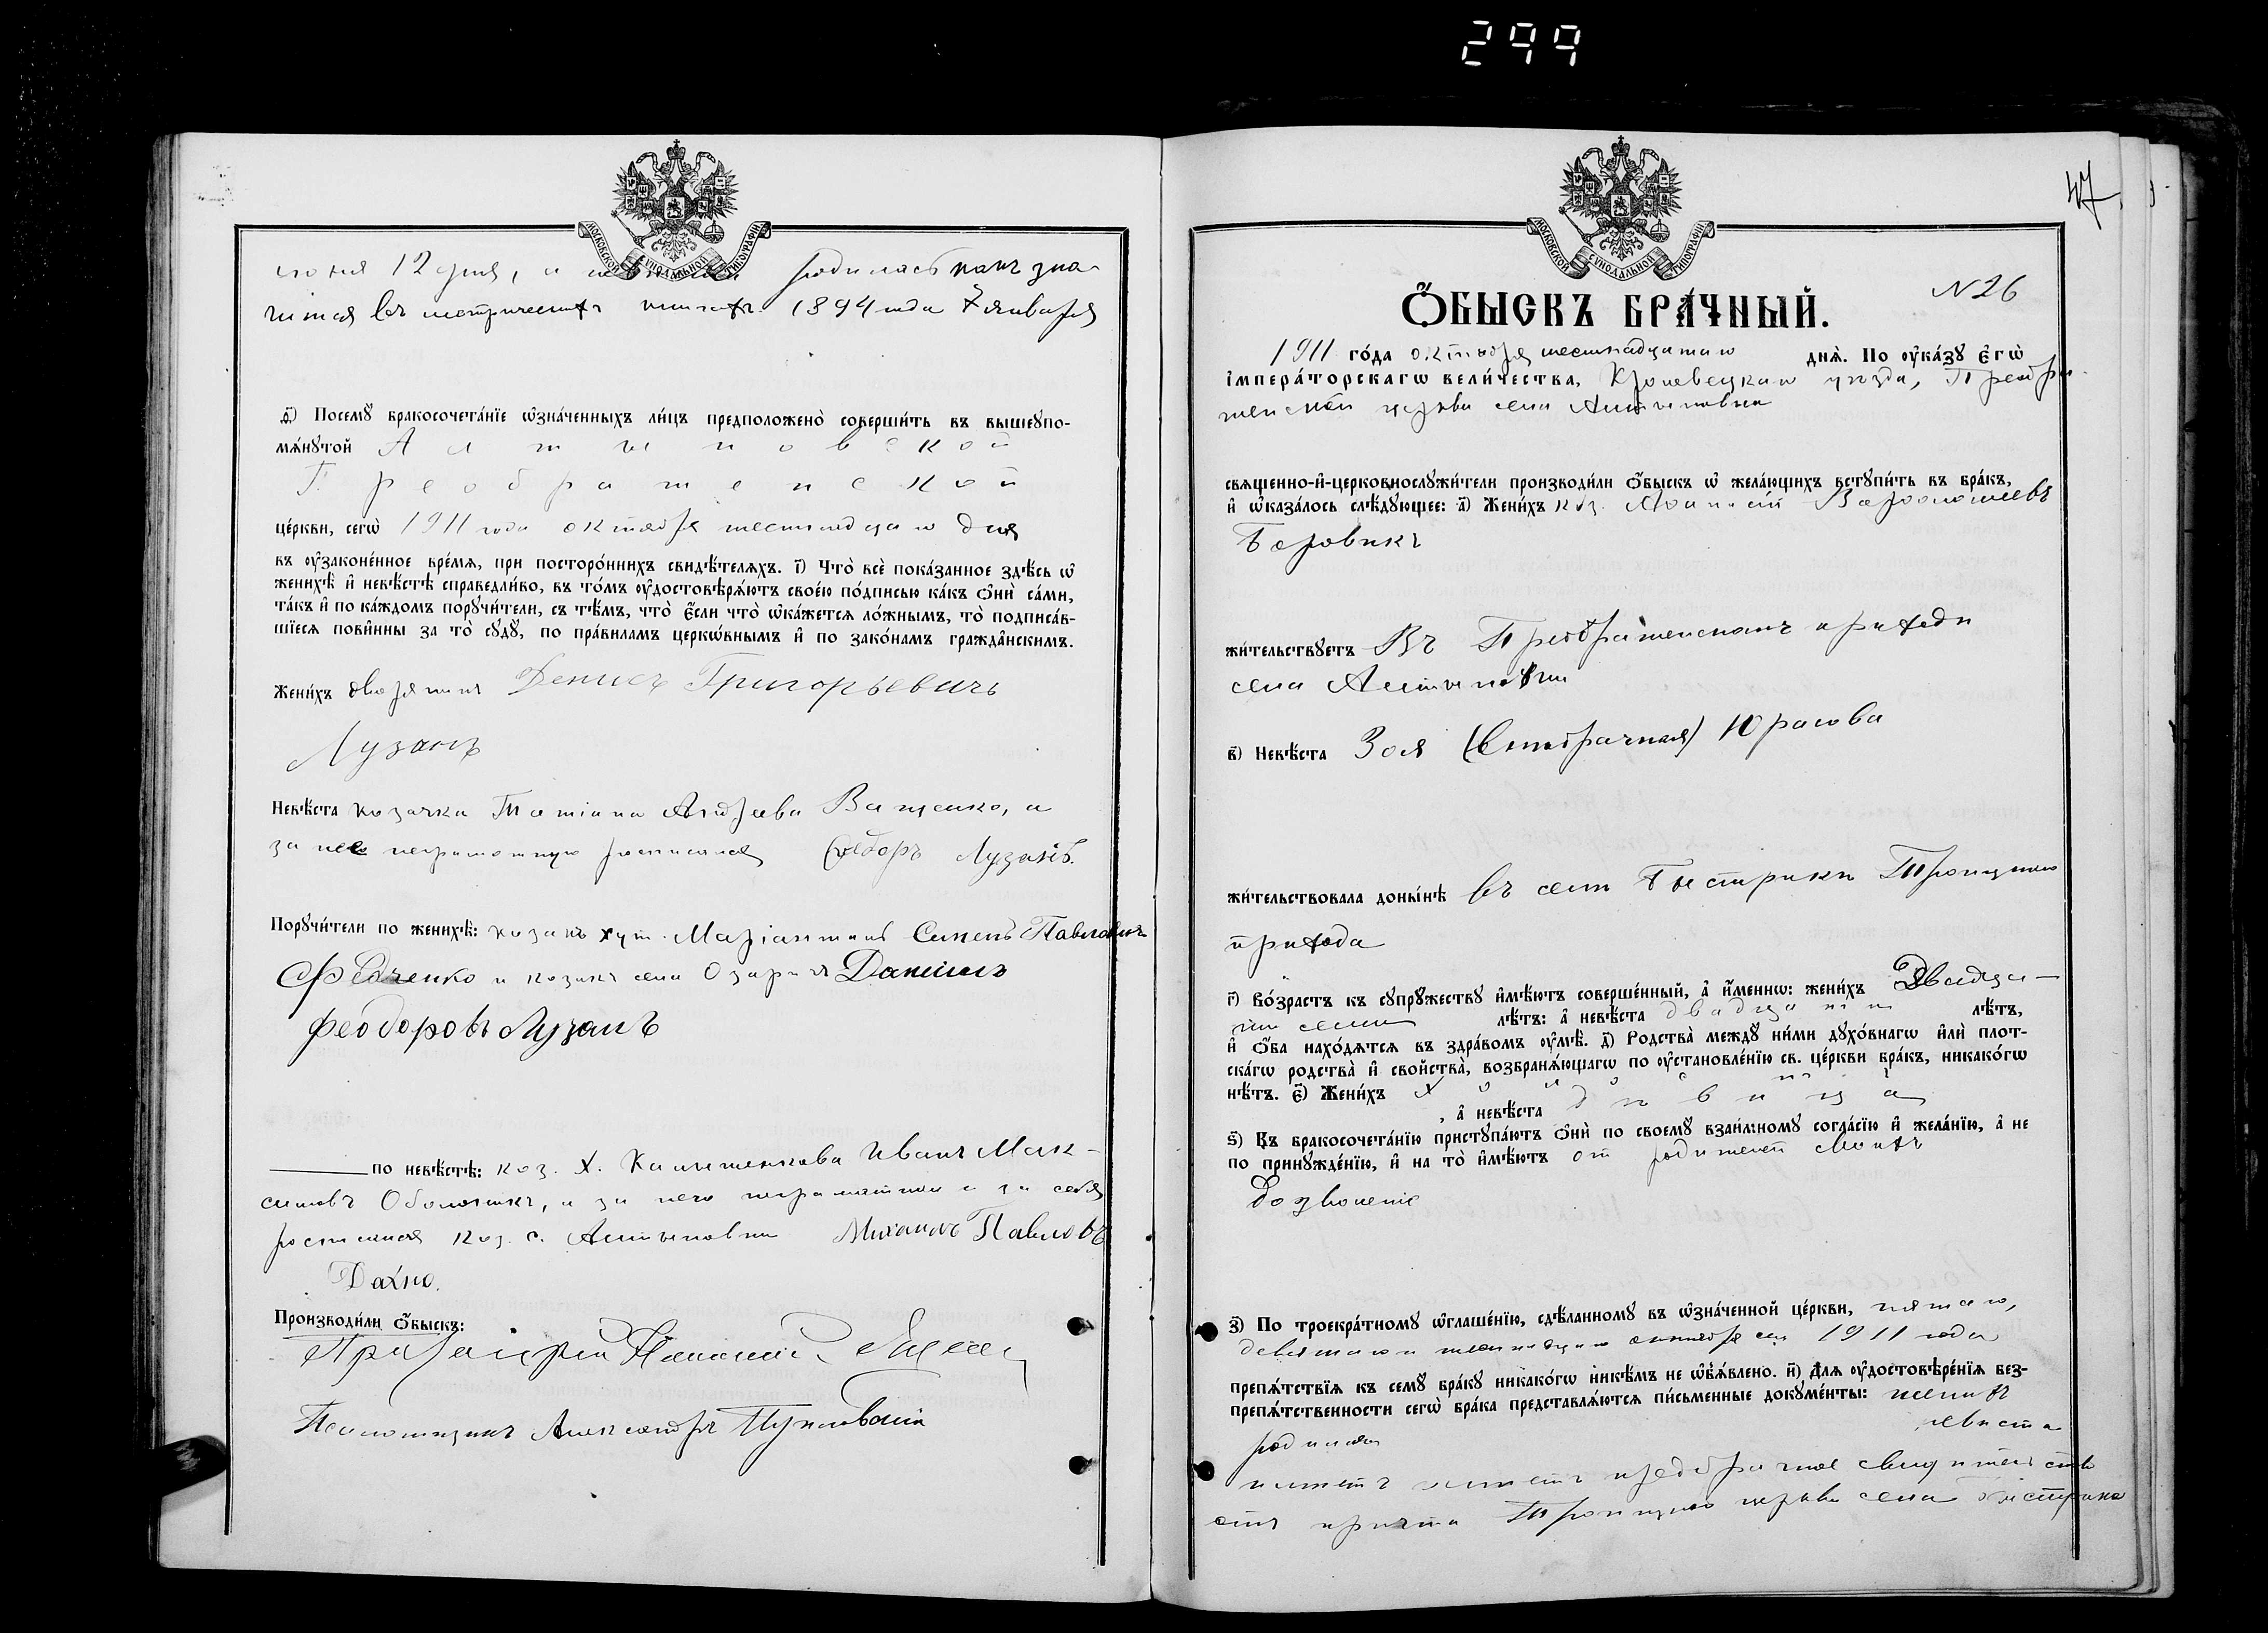 299
МОСКОВСКОЙ СѴНОДАЛЬНОЙ ТИПОГРАФІИ
12 дня, и родилась какъ зна-
чится въ метрическихъ книгахъ 1894 года 7 января
д҃) Посемꙋ бракосочета́нїе ѡ҆зна́ченныхъ ли́цъ предположено̀ соверши́ть въ вышеꙋпо-
мѧ́нꙋтой Алтыновской
Преображенской
це́ркви, сегѡ̀ 1911 года октября шестнадцаго дня
въ ᲂу҆законе́нное вре́мѧ, при посторо́ннихъ свидѣ́телѧхъ. і҃) Что̀ всѐ пока́занное здѣ́сь ѡ҆
женихѣ̀ и҆ невѣ́стѣ справедли́во, въ то́мъ ᲂу҆достовѣрѧ́ютъ свое́ю по́дписью ка́къ ѻ҆нѝ са́ми,
та́къ и҆ по ка́ждомъ порꙋчи́тели, съ тѣ́мъ, что̀ є҆́сли что̀ ѡ҆ка́жетсѧ ло́жнымъ, то̀ подписа́в-
шїесѧ пови́нны за то̀ сꙋдꙋ̀, по пра́виламъ церкѡ́внымъ и҆ по зако́намъ гражда́нскимъ.
Жени́хъ дворянинъ Денисъ Григорьевичъ
Лузанъ
Невѣ́ста козачка Татіана Андреева Ващенко, а
за нее неграмотную росписался Ѳедоръ Лузанъ.
Порꙋчи́тели по женихѣ̀: козакъ хут. Маріантина Семенъ Павловичъ
Федченко и козакъ села Озаричъ Даніилъ
Феодоровъ Лузанъ
по невѣ́стѣ: коз. х. Калиштенкова Иванъ Мак-
симовъ Оболотикъ, а за него неграмотнаго и за себя
росписался коз. с. Алтыновки Михаилъ Павловъ
Дахно.
Производи́ли ѻ҆́быскъ:
Псаломщикъ Александръ
47
МОСКОВСКОЙ СѴНОДАЛЬНОЙ ТИПОГРАФІИ
N 26
Ѻ҆́БЫСКЪ БРА́ЧНЫЙ.
1911 го́да октября шестнадцатаго днѧ̀. По ᲂу҆ка́зꙋ є҆гѡ̀
і҆мпера́торскагѡ вели́чества, Кролевецкаго уѣзда, Преобра-
женской церкви села Алтыновки
свѧщенно-и҆-церковнослꙋжи́тели производи́ли ѻ҆́быскъ ѡ҆ жела́ющихъ встꙋпи́ть въ бра́къ,
и҆ ѡ҆каза́лось слѣ́дꙋющее: а҃) Жени́хъ коз. Варѳоломеевъ
Боровикъ
жи́тельствꙋетъ Въ Преображенскомъ приходѣ
села Алтыновки
в҃) Невѣ́ста Зоя (внѣбрачная) Юрасова
жи́тельствовала доны́нѣ въ селѣ Быстрикѣ Троицкаго
прихода
г҃) Во́зрастъ къ сꙋпрꙋ́жествꙋ и҆мѣ́ютъ соверше́нный, а҆ и҆́меннѡ: жени́хъ Двадца-
ти семи лѣ́тъ: а҆ невѣ́ста двадцати лѣ́тъ,
и҆ ѻ҆́ба нахо́дѧтсѧ въ здра́вомъ ᲂу҆мѣ̀. д҃) Родства̀ междꙋ̀ ни́ми дꙋхо́внагѡ и҆лѝ плот-
ска́гѡ родства̀ и҆ сво́йства̀, возбранѧ́ющагѡ по ᲂу҆становле́нїю св. це́ркви бра́къ, никако́гѡ
нѣ́тъ. є҃) Жени́хъ холостъ
, а҆ невѣ́ста дѣвица
ѕ҃) Къ бракосочета́нїю пристꙋпа́ютъ ѻ҆нѝ по своемꙋ̀ взаи́мномꙋ согла́сїю и҆ жела́нїю, а҆ не
по принꙋжде́нїю, и҆ на то̀ и҆мѣ́ютъ от родителей своихъ
дозволеніе
з҃) По троекра́тномꙋ ѡ҆глаше́нїю, сдѣ́ланномꙋ въ ѡ҆зна́ченной це́ркви, пятаго,
девятаго и октября сего 1911 года
препѧ́тствїѧ къ семꙋ̀ бра́кꙋ никако́гѡ никѣ́мъ не ѡ҆б̾ѧ́влено. и҃) Длѧ ᲂу҆достовѣре́нїѧ без-
препѧ́тственности сегѡ̀ бра́ка представлѧ́ютсѧ пи́сьменные докꙋме́нты: женихъ
родился невѣста
имѣетъ предбрачное свидѣтельство
отъ причта Троицкой церкви села Быстрика